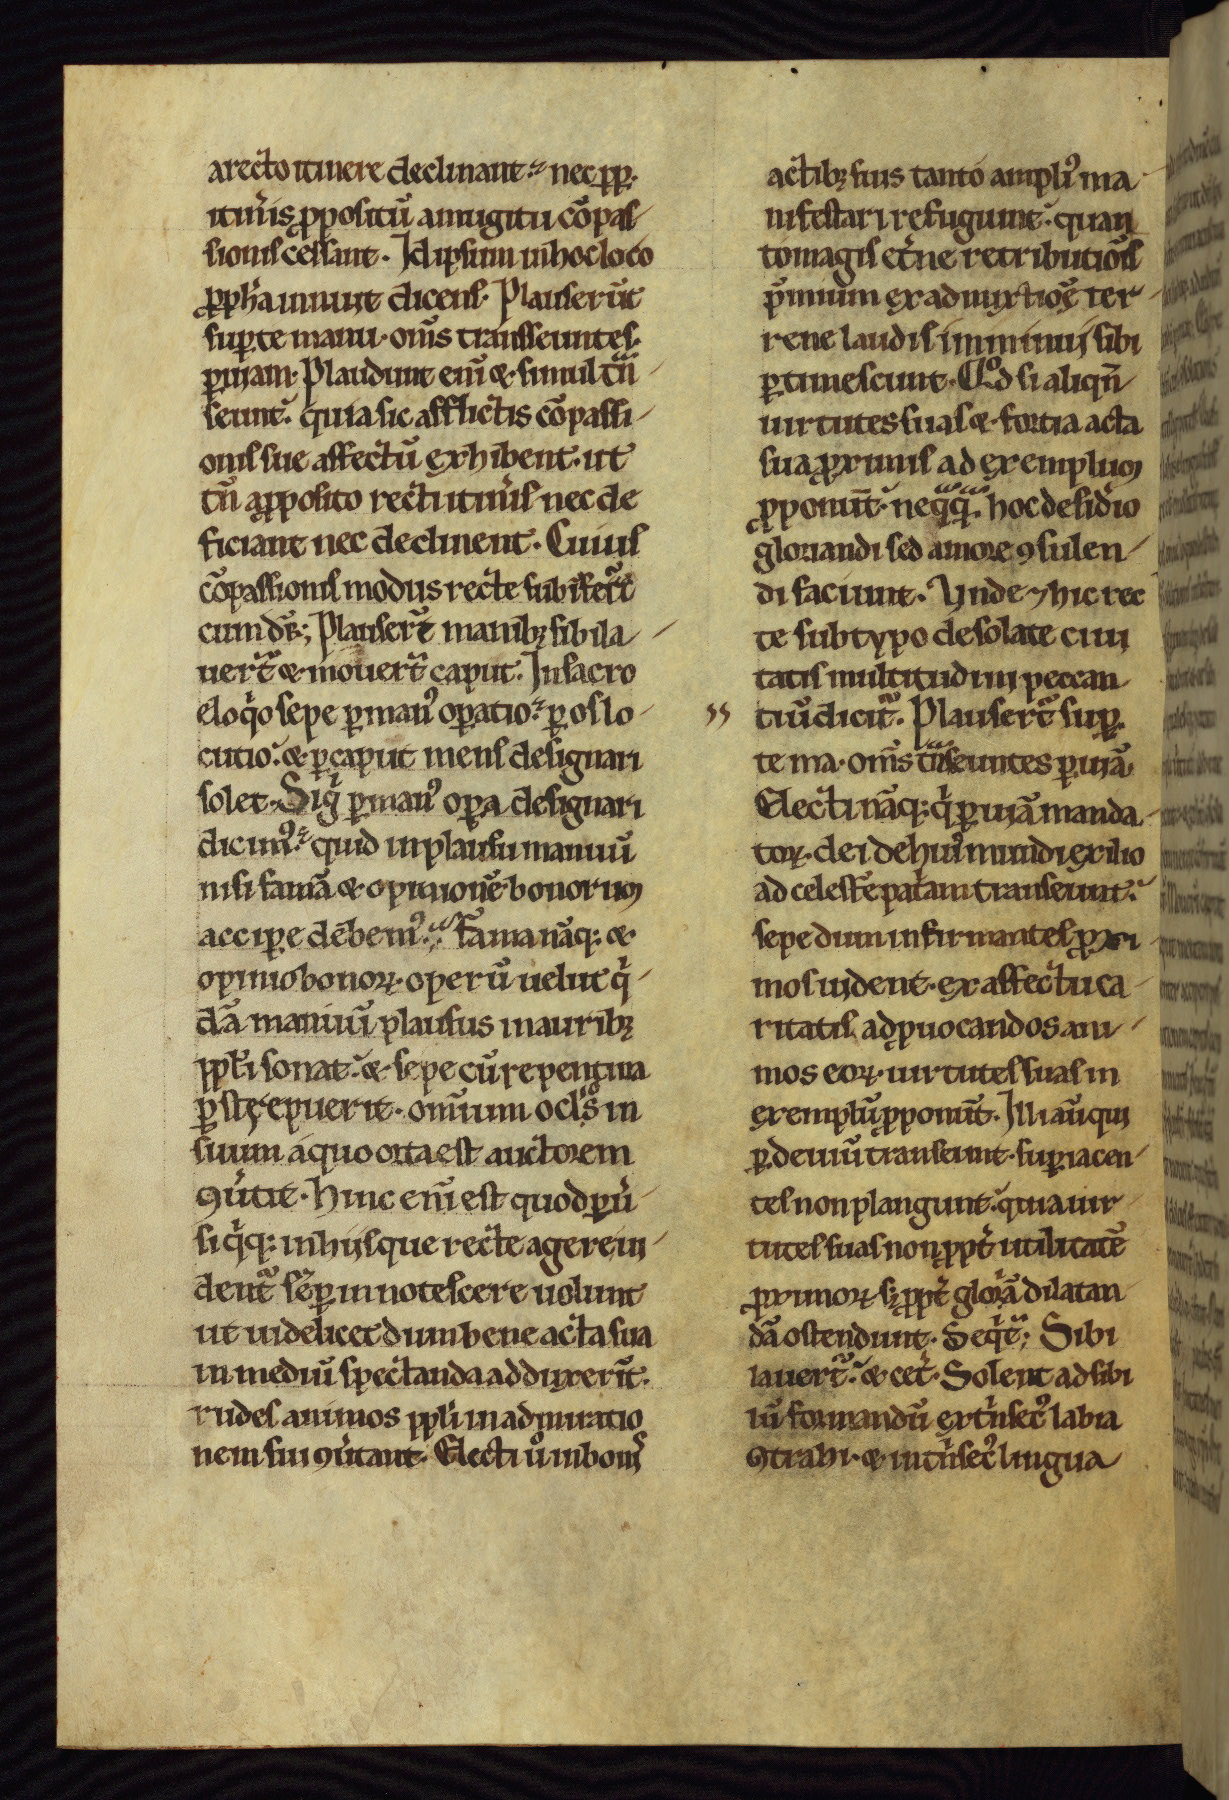 a recto itinere declinant. nec ꝓp̱
itin̄is ꝓpositū a mugitu cōpas
sionis cessant. Idipsum in hoc loco
ꝓph̄a innuit dicens. Plauserūt
suꝑ te manu. om̄s transseuntes
ꝑ uiam. Plaudunt eni̅ & simul tn̅
seunt. quia sic afflictis cōpassi
onis sue affectū exhibent. ut
tn̄ a ꝓposito recti itin̄is nec de
ficiant nec declinent. Cuius
cōpassionis modus recte subinfert̄
cum dr̄; Plausert̄ manibꝫ sibila
uert̄ & mouert̄ caput. In sacro
eloq̇o sepe ꝑ manꝰ oꝑatio. ꝑ os lo
cutio. & ꝑ caput mens designari
solet. Siġ ꝑ manꝰ oꝑa designari
dicimꝰ. quid in plausu manuū
nisi famā & opinionē bonorum
acciꝑe debemꝰ. Fama nāq; &
opinio bonoꝝ operū uelut q̇
dā manuū plausus in auribꝫ
ppl̄i sonat. & sepe cū repentina
ꝑstrepuerit. omnium ocl̄s in
suum a quo orta est auctorem
ꝯuertit. Hinc eni̅ est quod ꝑuer
si q̇q; in hijs que recte agere ui
dent̄ sēꝑ innotescere uolunt
ut uidelicet dum bene acta sua
in mediū spectanda adduxerīt.
rudes animos ppl̄i in admiratio
nem sui ꝯuertant. Electi u̇ in bonis
actibꝫ suis tanto amplꝰ ma
nifestari refugiunt. quan
to magis et̄ne retributiōis
p̄mium ex admixtiōe ter
rene laudis imminui sibi
ꝑtimescunt. Qd̊ si aliqn̄
uirtutes suas & fortia acta
sua ꝓximis ad exemplum
ꝓponūt. neq̄q̄. hoc desid̄io
gloriandi sed amore ꝯsulen
di faciunt. Unde ⁊ hic rec
te sub typo desolate ciui
tatis multitudini peccan
tiū dicit̄. Plausert̄ suꝑ
te ma. om̄s tn̄seuntes ꝑ uiā
Electi nāq; q̇ ꝑ uiā manda
toꝝ dei de huiꝰ mundi exilio
ad celestē pat̄am transeunt.
sepe dum infirmantes ꝓxi
mos uident. ex affectu ca
ritatis ad ꝓuocandos ani
mos eoꝝ. uirtutes suas in
exemplū ꝓponūt. Illi aū qui
ꝑ deuiū transeunt. suꝑ iacen
tes non plangunt. quia uir
tutes suas non ꝓpt̄ utilitatē
ꝓximoꝝ sꝫ ꝓpt̄ glor̄ā dilatan
dā ostendunt. Seq̇t̄; Sibi
lauert̄. & cet̄. Solent ad sibi
lū formandū ext̄nsecꝰ labia
ꝯtrahi. & int̄nsecꝰ lingua